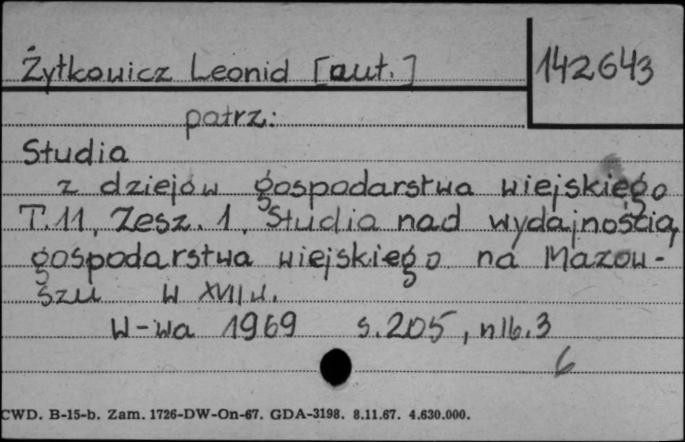 Żytkowicz Leonid [aut.]
142643
patrz:
Studia
z dziejów gospodarstwa wiejskiego
T.11, Zesz. 1. Studia nad wydajnością
gospodarstwa wiejskiego na Mazow-
szu w XVII w.
W-wa 1969 s. 205, nlb. 3
6
CWD. B-15-b. Zam. 1726-DW-On-67. GDA-3198. 8.11.67. 4.630.000.